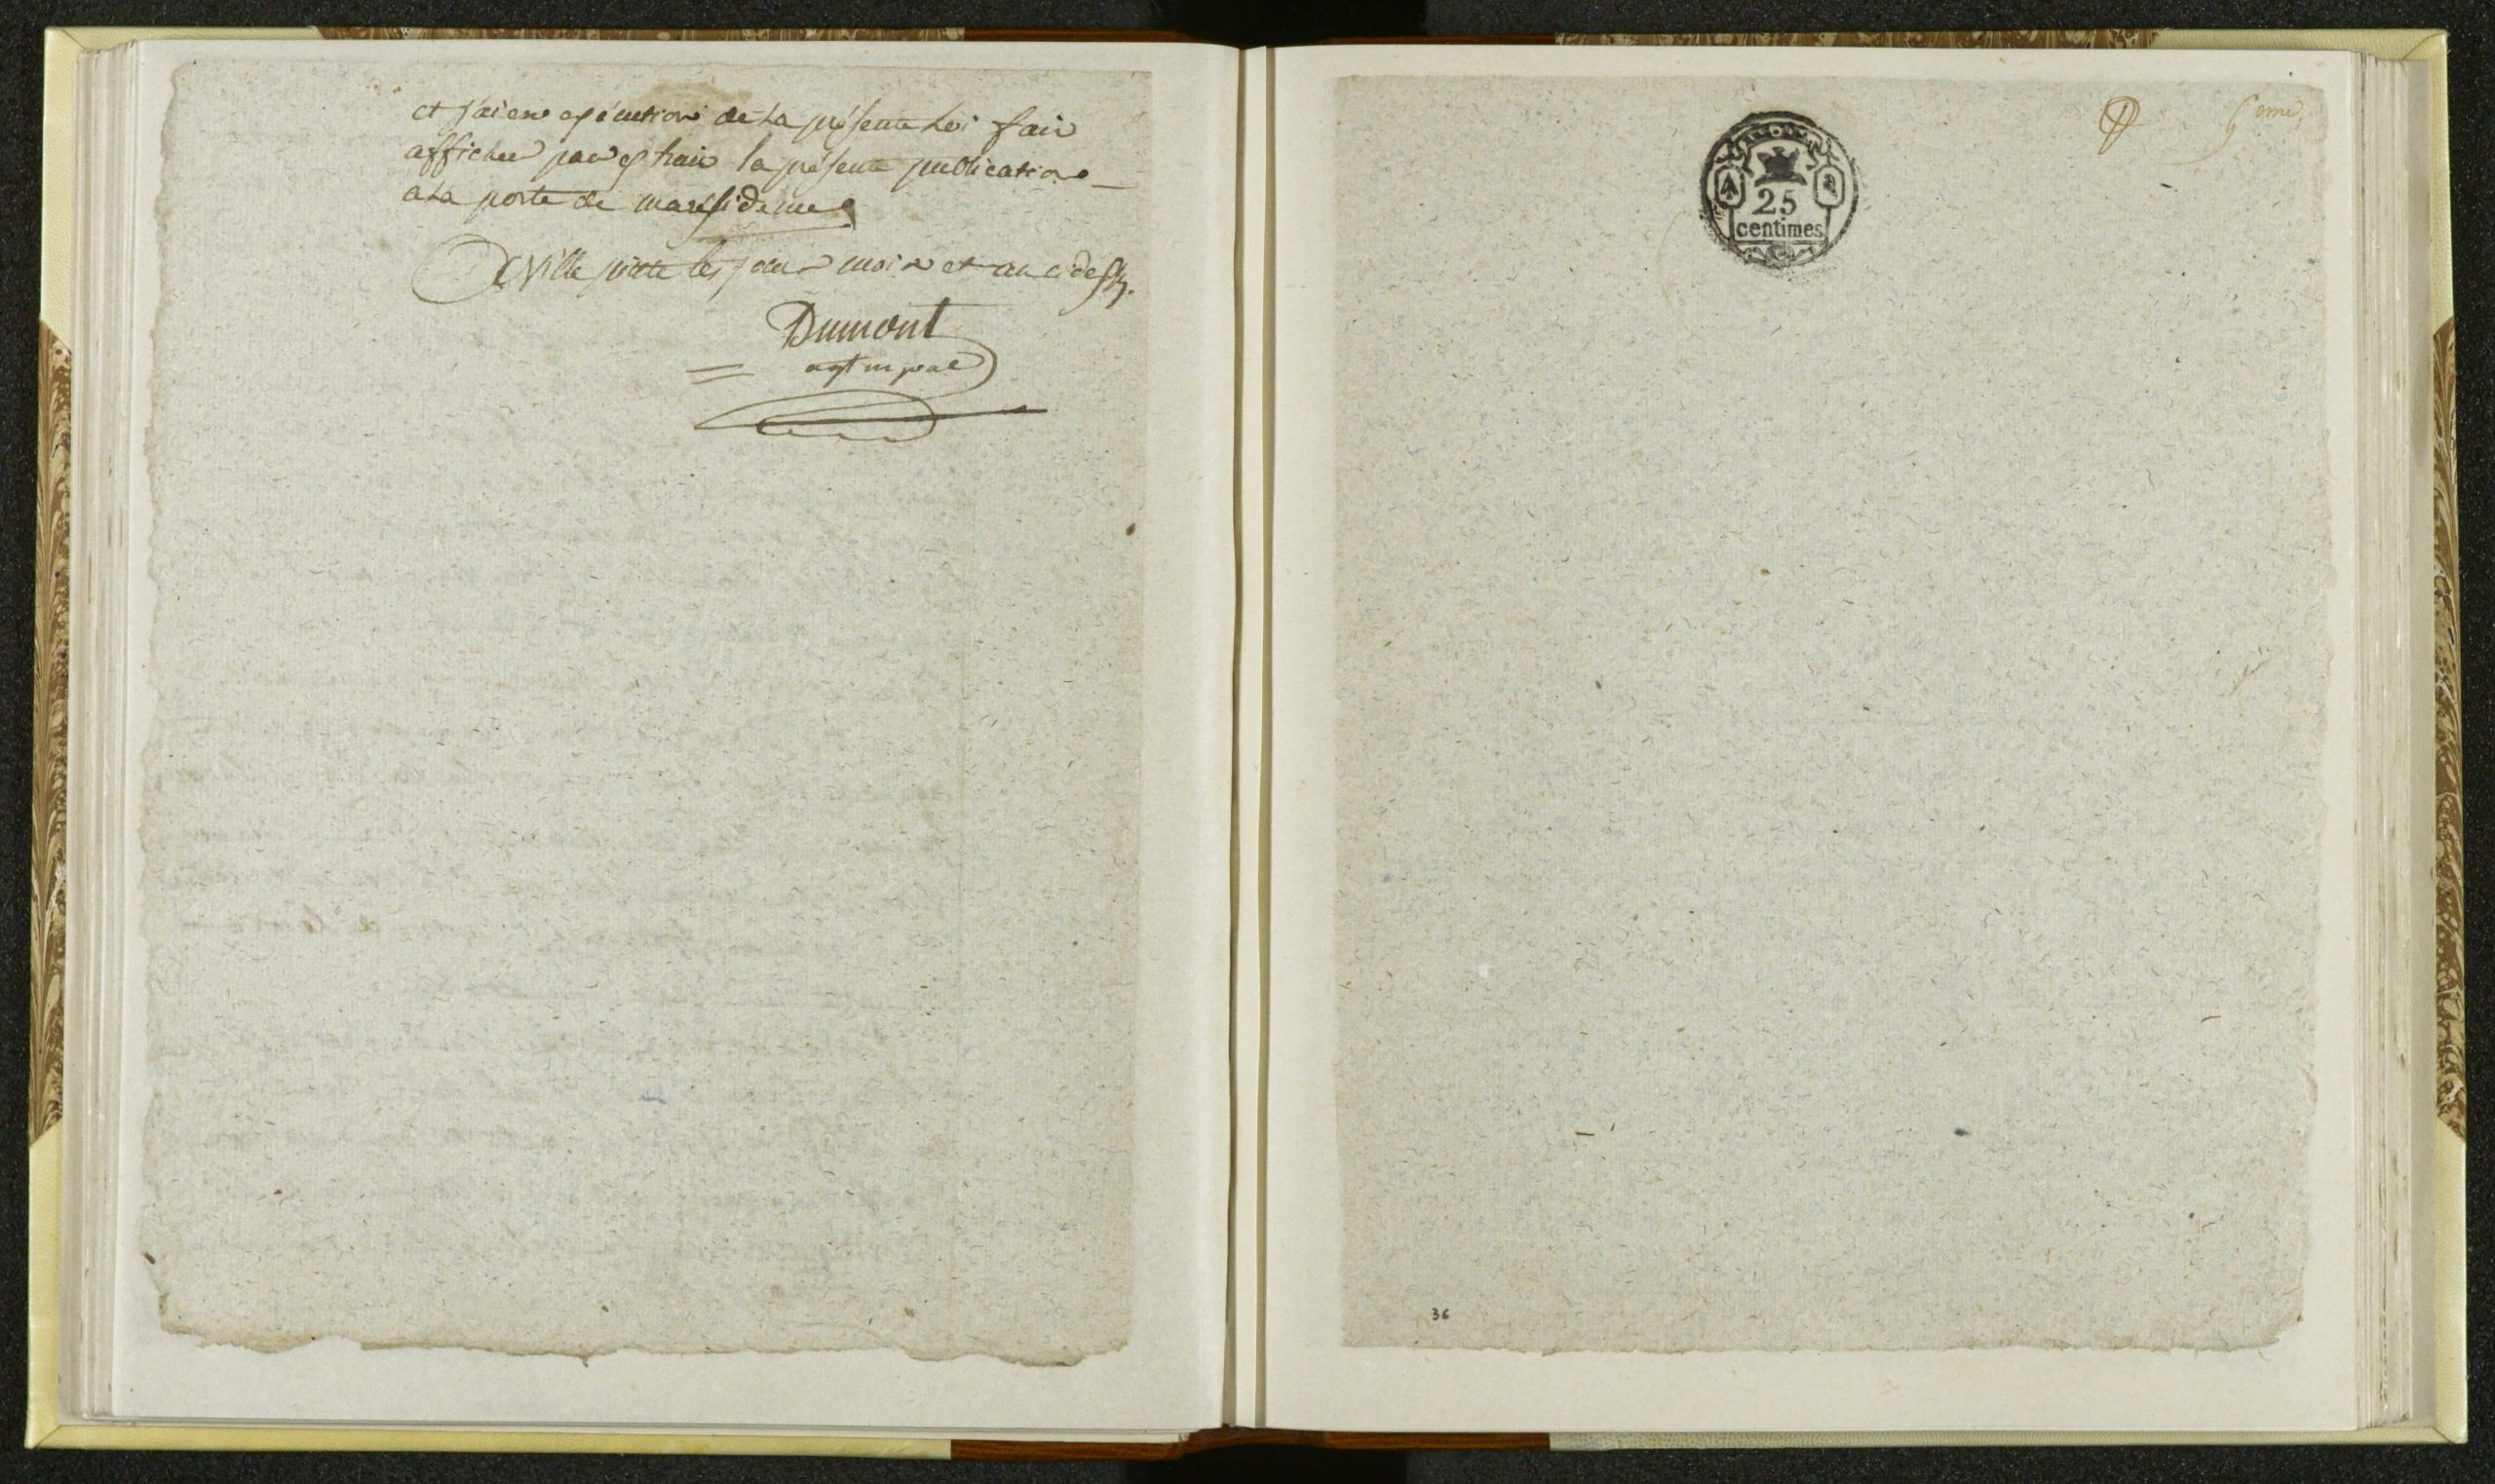 et j'ai en exécution de la présente Loi fait
afficher par extrait la présente publication
a la porte de marésidence
AVille juxte les jour mois et an ci dessus.
Dumont
agt mpal
25
centimes
6eme
36